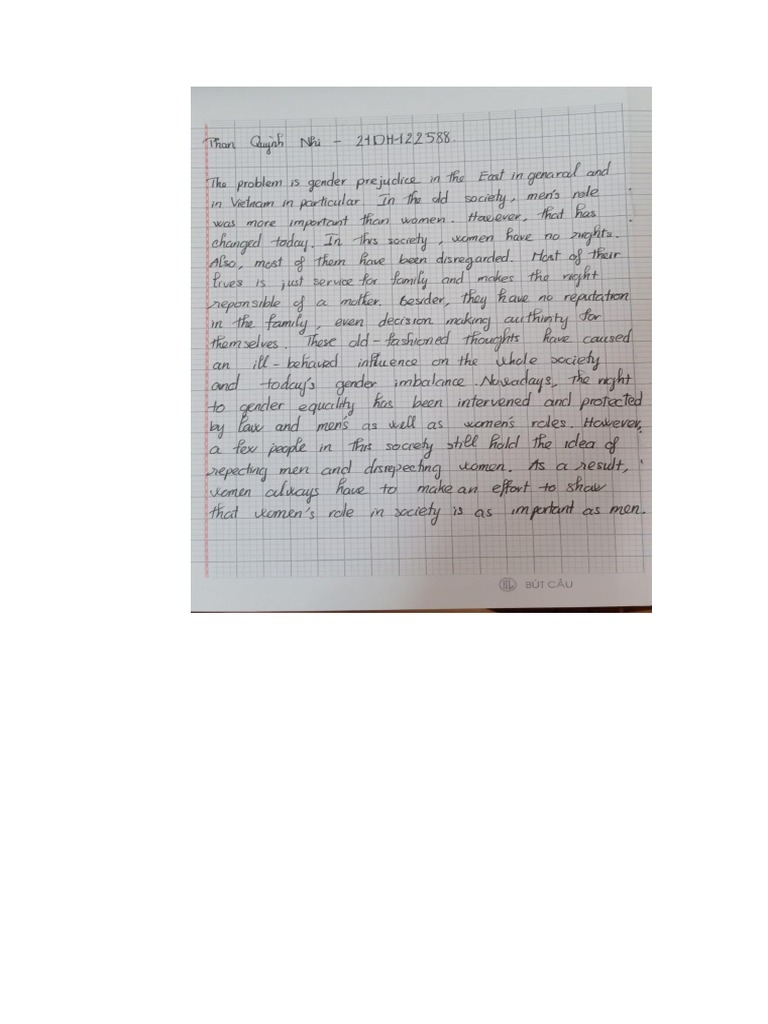 Than Quỳnh Nhi - 21DH122588
The problem is gender prejudice in the East in genaral and
in Vietnam in particular. In the old society, men's role
was more important than women. However, that has
changed today. In this society, women have no rights.
Also, most of them have been disregarded. Most of their
lives is just service for family and makes the right
reponsible of a mother. Besider, they have no reputation
in the family, even decision making authinty for
themselves. These old-fashioned thoughts have caused
an ill-behaved influence on the whole society
and today's gender imbalance. Nowadays, the right
to gender equality has been intervened and protected
by law and men's as well as women's roles. However,
a few people in this society still hold the idea of
repecting men and disrepecting women. As a result,
women always have to make an effort to show
that women's role in society is as important as men.
BÚT CÂU